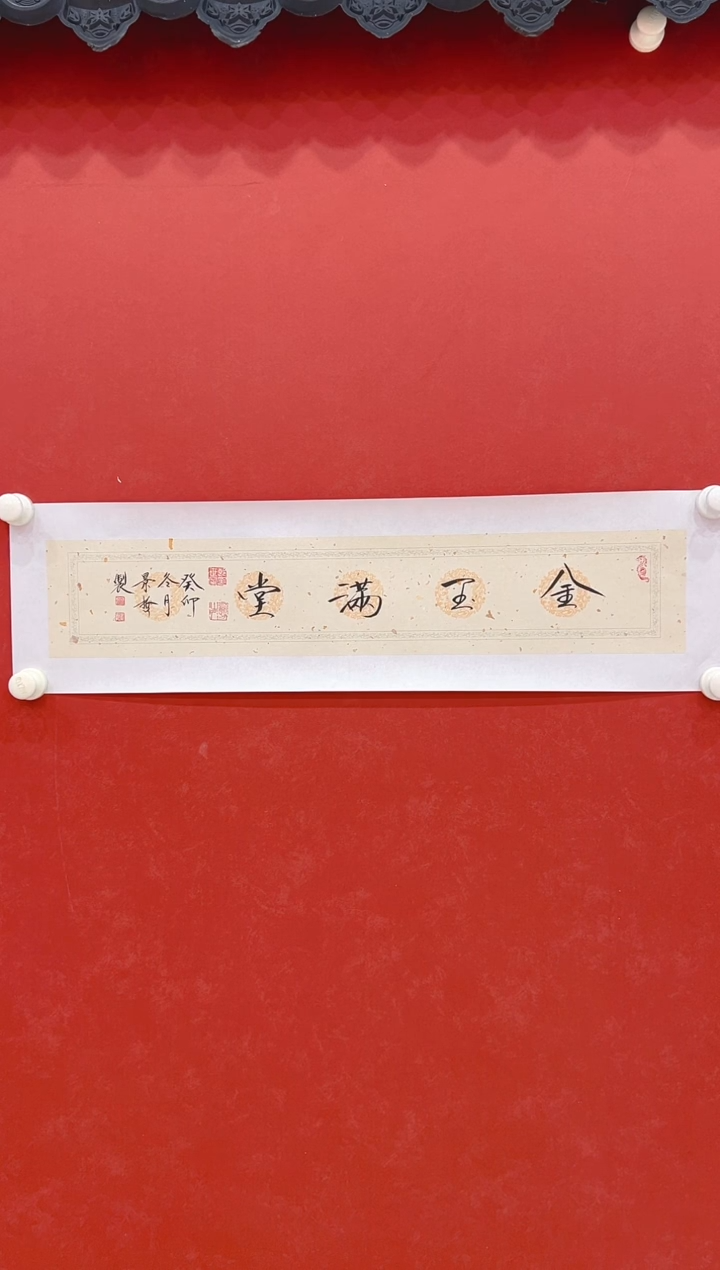 金玉满堂
癸卯
冬月
景
製